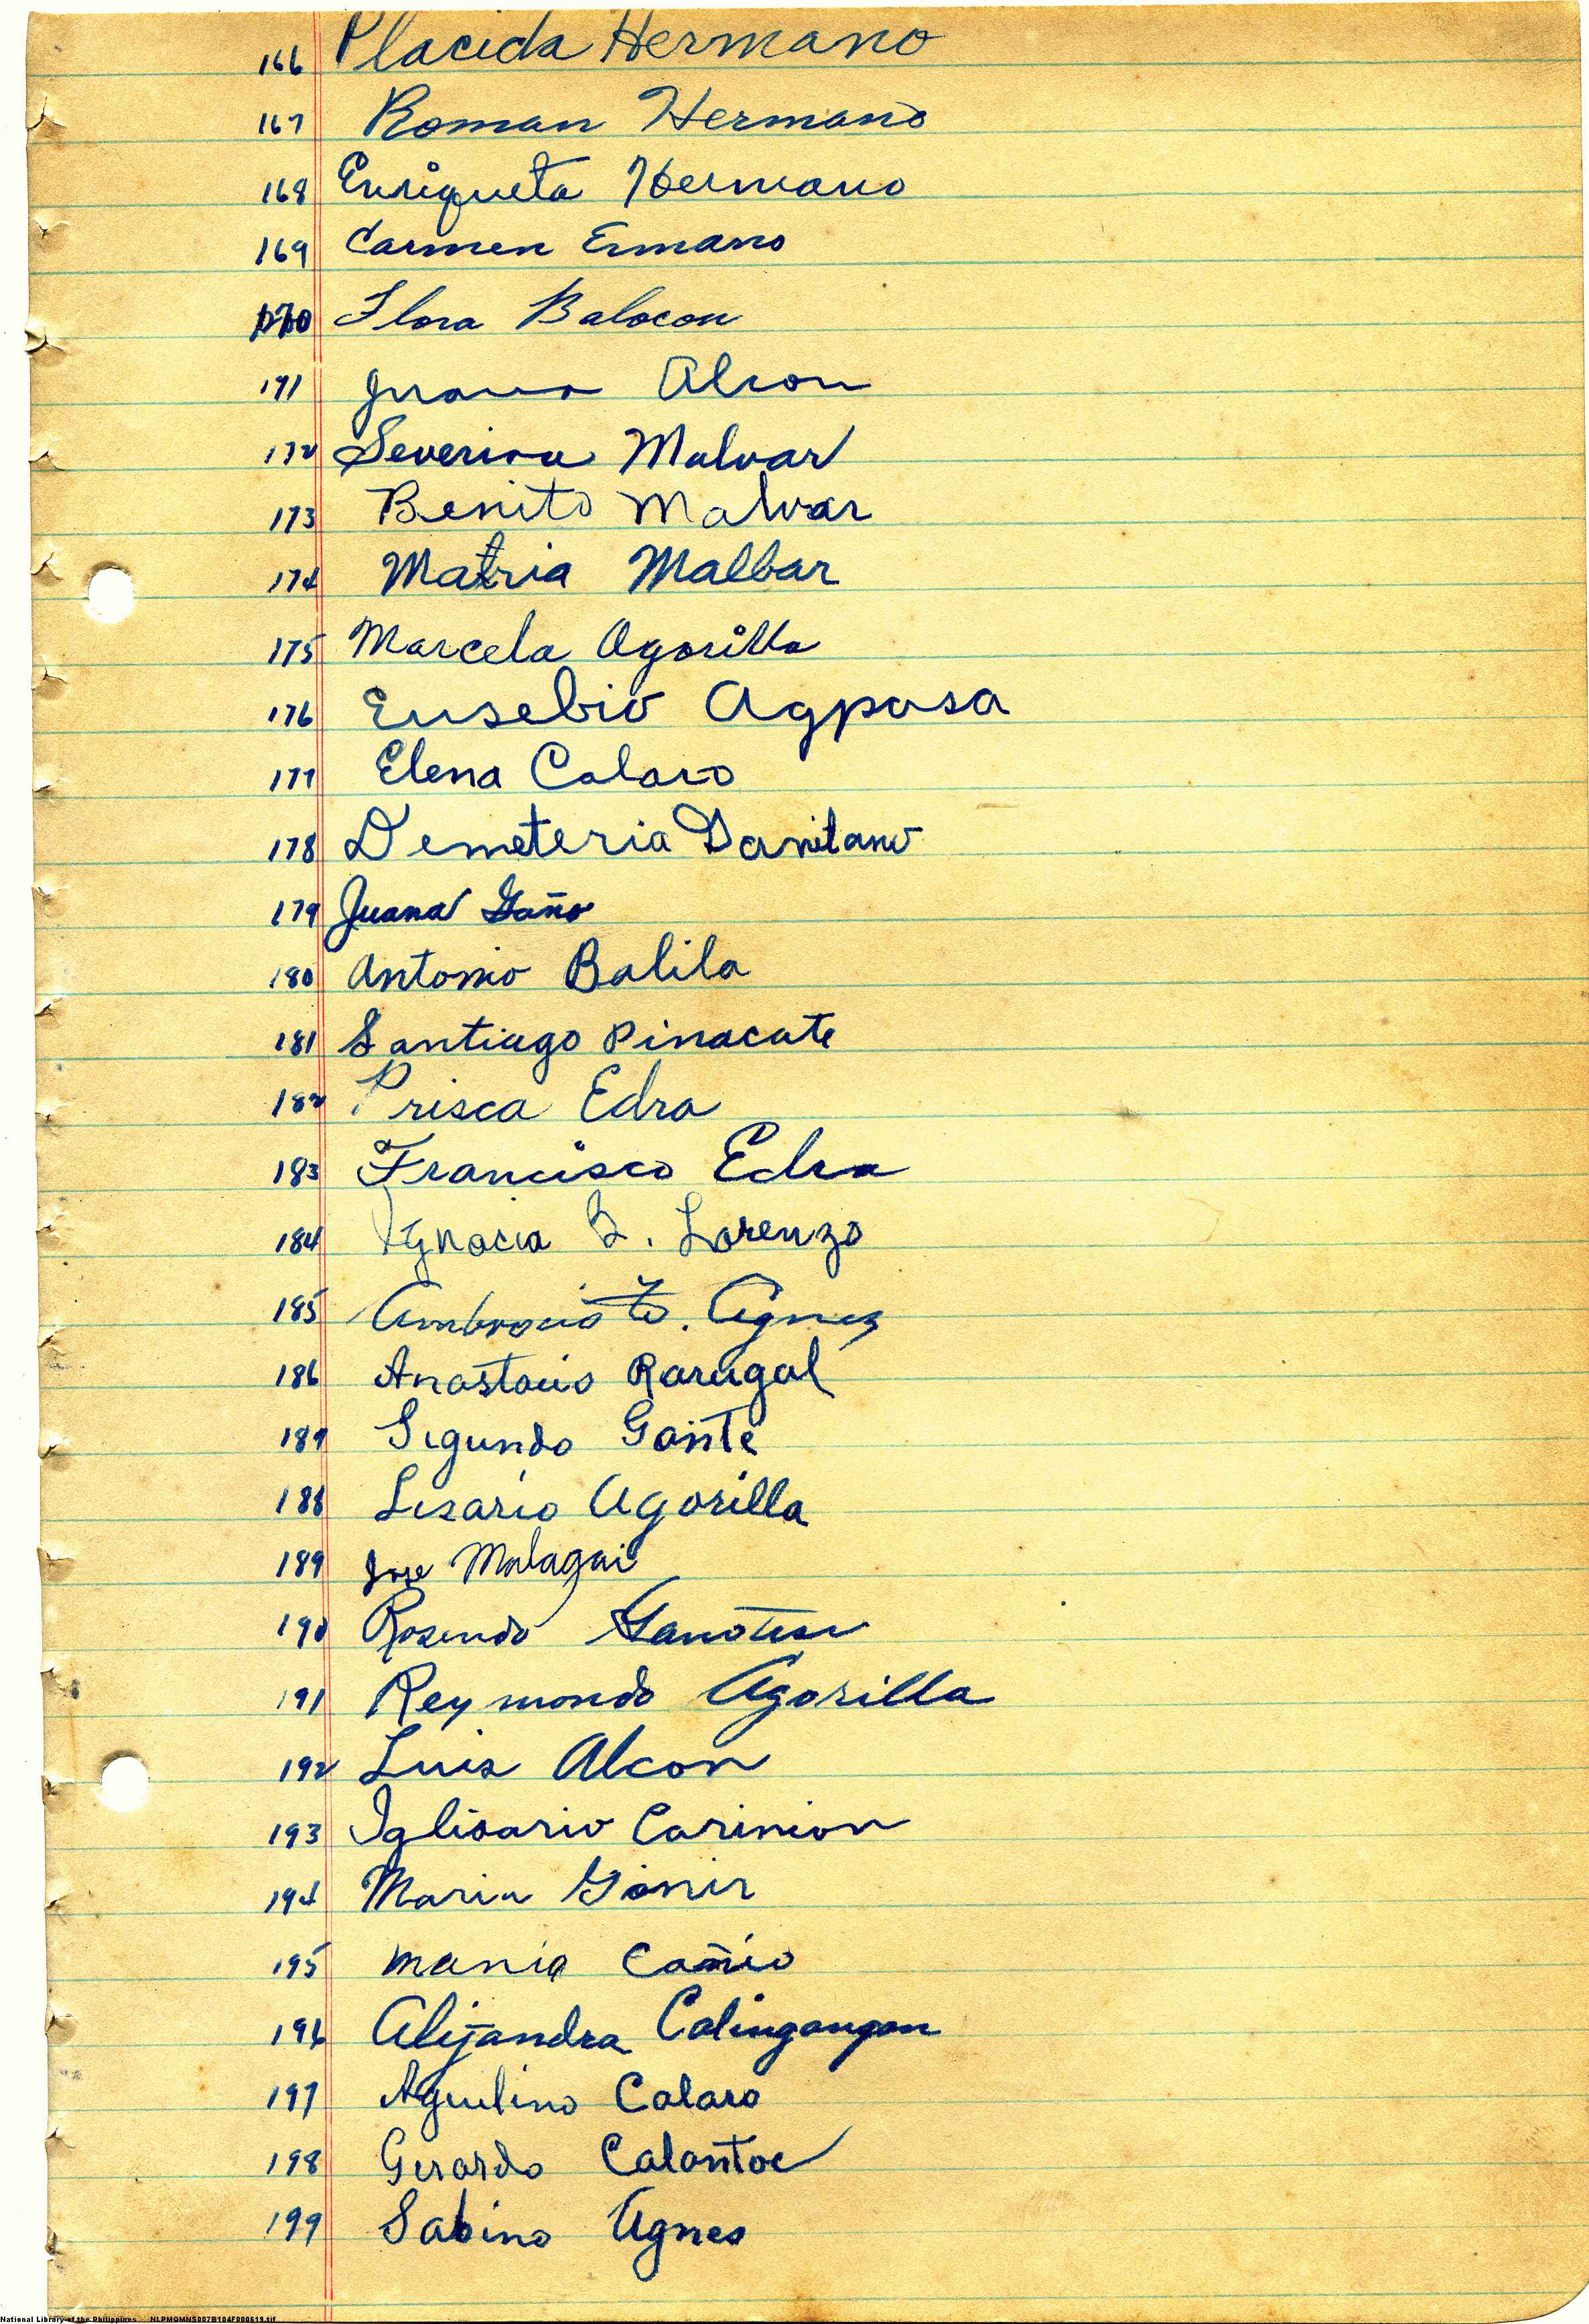 166 Placida Hermano
167 Roman Hermano
168 Enriqueta Hermano
169 Carmen Ermano
170 Flora Balocon
171 Juana Alcon
172 Severina Malvar
173 Benito Malvar
174 Matria Malbar
175 Marcela Agorilla
176 Eusebio Agpasa
177 Elena Calaro
178 Demeteria Danitano
179 Juana Gaño
180 Antonio Balila
181 Santiago Pinacate
182 Prisca Edra
183 Francisco Edra
184 Ygnacia Lorenzo
185 Ambrocio Agnes
186 Anastacio Raragal
187 Sigundo Gante
188 Lisario Agorilla
189 Jose Malagai
190 Rosendo
191 Reymondo Agorilla
192 Luis Alcon
193 Iglisario Carinion
194 Maria Gonir
195 mania Cañio
196 Alijandra Calingangan
197 Aguilino Calaro
198 Gerardo Calantoc
199 Sabino Agnes
National Library of the Philippines NLPMQMNS007B104F000619.tif